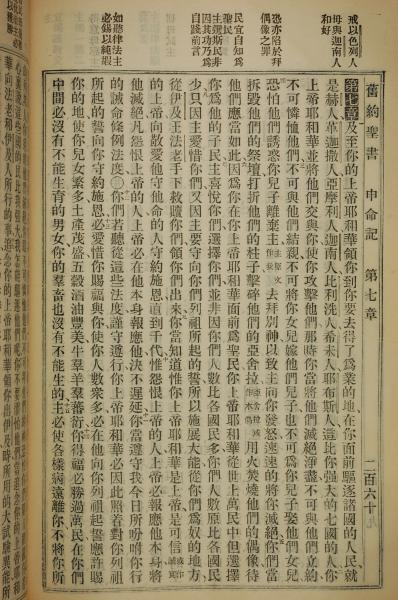 舊約聖書 申命記 第七章 二百六十
戒以色列人
毋與迦南人
和好
恐亦陷於拜
偶像之罪
民宜自知為
聖民
主選斯民非
因其功乃為
自踐前言
如聽律法主
必錫以純嘏
第七章及至你的上帝耶和華領你到你要去得了為業的地在你面前驅逐諸國的人民就
是赫人革迦撒人亞摩利人迦南人比利洗人希未人耶布斯人這比你強大的七國的人你
上帝耶和華並將他們交與你使你攻擊他們那時你當將他們滅絕淨盡不可與他們立約
不可憐恤他們不可與他們結親不可將你女兒嫁他們兒子也不可為你兒子娶他們女兒
恐怕他們誘惑你兒子離棄主去拜別神以致主向你發怒速速的將你滅絕你們當
拆毀他們的祭壇打折他們的柱子擊碎他們的亞舍拉用火焚燒他們的偶像待
他們應當如此因為你在你上帝耶和華面前為聖民你上帝耶和華從世上萬民中但選擇
你為他的子民主喜悅你們選擇你們並非因你們人數比各國民多你們人數原比各國民
少只因主愛惜你們又因主要守向你們列祖所起的誓所以施展大能從你們為奴的地方
從伊及王法老手下救贖你們領你們出來你當知道惟你上帝耶和華是上帝是可信
的上帝向敬愛他守他命的人守約施恩直到千代惟怨恨上帝的人上帝必報應他本身將
他滅絕凡怨恨上帝的人上帝必在他本身報應他決不遲延你當遵守我今日所吩咐你行
的誡命條例法度○你們若聽從這些法度謹守遵行你上帝耶和華必因此照着對你列祖
所起的誓向你守約施恩必愛惜你賜福與你使你人數衆多必在他向你列祖起誓應許賜
你的地使你兒女繁多土產茂盛五穀酒油豐美牛羣羊羣蕃衍你得福必勝過萬民在你們
中間必沒有不能生育的男女你的羣畜也沒有不能生的主必使各樣病遠離你不將你所